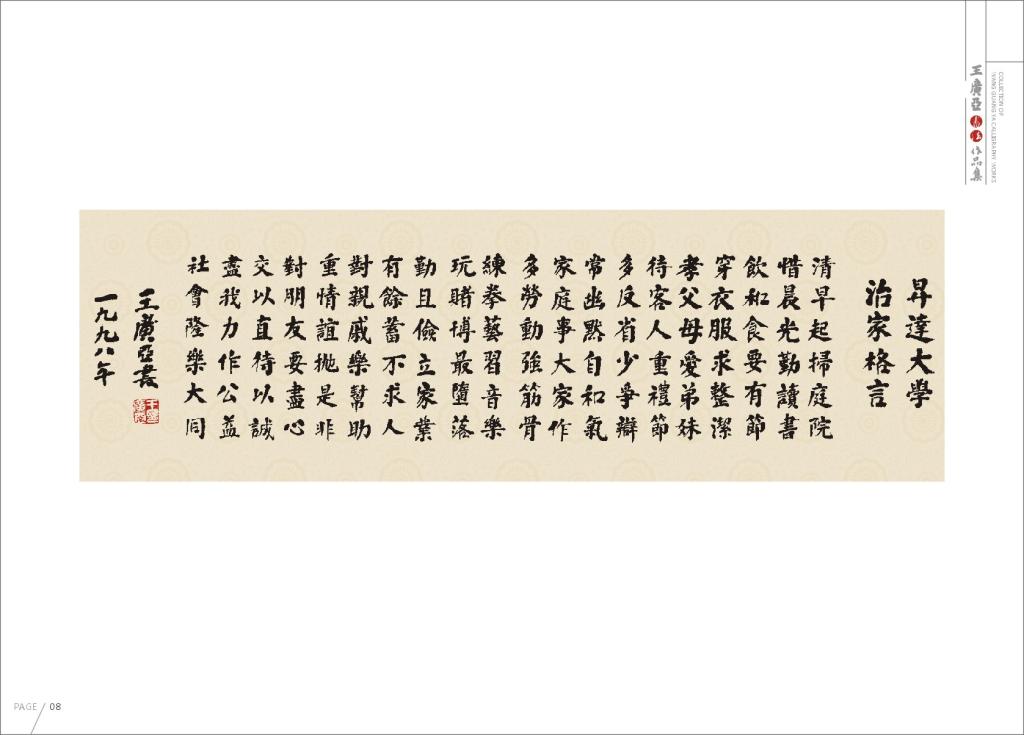 王廣亞書法作品集
COLLECTION OF
WANG GUANG YA CALLIGRAPHY WORKS
昇達大學
治家格言
清早起掃庭院
惜晨光勤讀書
飲和食要有節
穿衣服求整潔
孝父母愛弟妹
待客人重禮節
多反省少爭辯
常幽默自和氣
家庭事大家作
多勞動強筋骨
練拳藝習音樂
玩賭博最墮落
勤且儉立家業
有餘蓄不求人
對親戚樂幫助
重情誼拋是非
對朋友要盡心
交以直待以誠
盡我力作公益
社會隆樂大同
王廣亞書
一九九八年
PAGE 08